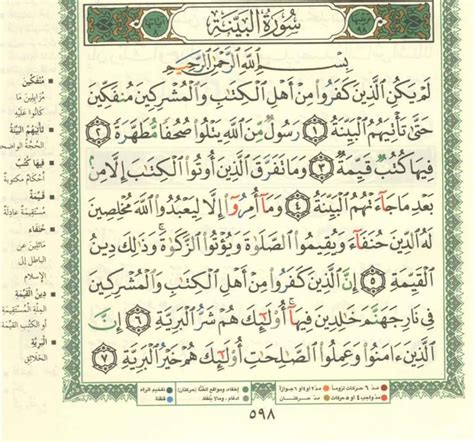 سُورَةُ البَيِّنَةِ
بِسْمِ اللَّهِ الرَّحْمَٰنِ الرَّحِيمِ
لَمْ يَكُنِ الَّذِينَ كَفَرُوا مِنْ أَهْلِ الْكِتَٰبِ وَالْمُشْرِكِينَ مُنفَكِّينَ
حَتَّىٰ تَأْتِيَهُمُ الْبَيِّنَةُ ١ رَسُولٌ مِّنَ اللَّهِ يَتْلُوا صُحُفًا مُّطَهَّرَةً ٢
فِيهَا كُتُبٌ قَيِّمَةٌ ٣ وَمَا تَفَرَّقَ الَّذِينَ أُوتُوا الْكِتَٰبَ إِلَّا مِن
بَعْدِ مَا جَآءَتْهُمُ الْبَيِّنَةُ ٤ وَمَآ أُمِرُوٓا إِلَّا لِيَعْبُدُوا اللَّهَ مُخْلِصِينَ
لَهُ الدِّينَ حُنَفَآءَ وَيُقِيمُوا الصَّلَوٰةَ وَيُؤْتُوا الزَّكَوٰةَ ۚ وَذَٰلِكَ دِينُ
الْقَيِّمَةِ ٥ إِنَّ الَّذِينَ كَفَرُوا مِنْ أَهْلِ الْكِتَٰبِ وَالْمُشْرِكِينَ
فِي نَارِ جَهَنَّمَ خَٰلِدِينَ فِيهَآ ۚ أُولَٰٓئِكَ هُمْ شَرُّ الْبَرِيَّةِ ٦ إِنَّ
الَّذِينَ ءَامَنُوا وَعَمِلُوا الصَّٰلِحَٰتِ أُولَٰٓئِكَ هُمْ خَيْرُ الْبَرِيَّةِ ٧
مُنفَكِّينَ
مُزَايِلِينَ مَا
كَانُوا عَلَيْهِ
تَأْتِيَهُمُ الْبَيِّنَةُ
الحُجَّةُ الوَاضِحَةُ
فِيهَا كُتُبٌ
أَحْكَامٌ مَكْتُوبَةٌ
قَيِّمَةٌ
مُسْتَقِيمَةٌ عَادِلَةٌ
حُنَفَاءَ
مَائِلِينَ عَنِ
البَاطِلِ إلَى
الإسْلامِ
دِينُ الْقَيِّمَةِ
المِلَّةِ المُسْتَقِيمَةِ
أو الكُتُبِ القَيِّمَةِ
الْبَرِيَّةِ
الخَلائِقِ
مدّ ٦ حركات لزوماً
مدّ ٢ أو ٤ أو ٦ جوازاً
إخفاء، ومواقع الغُنَّة (حركتان)
تفخيم الراء
مدّ واجب ٤ أو ٥ حركات
مدّ حركتان
إدغام، وما لا يُلفَظ
قلقلة
٥٩٨